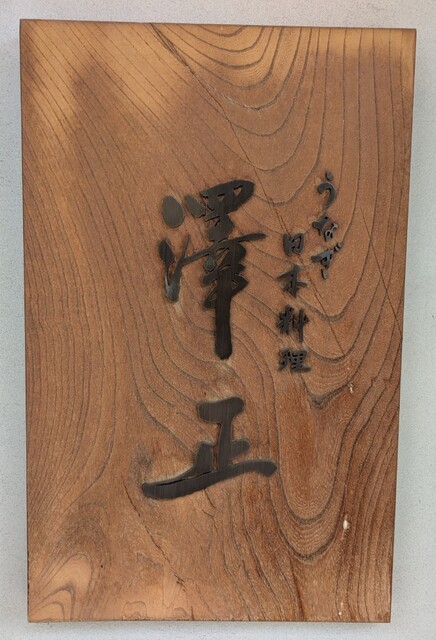 うなぎ
日本料理
澤正